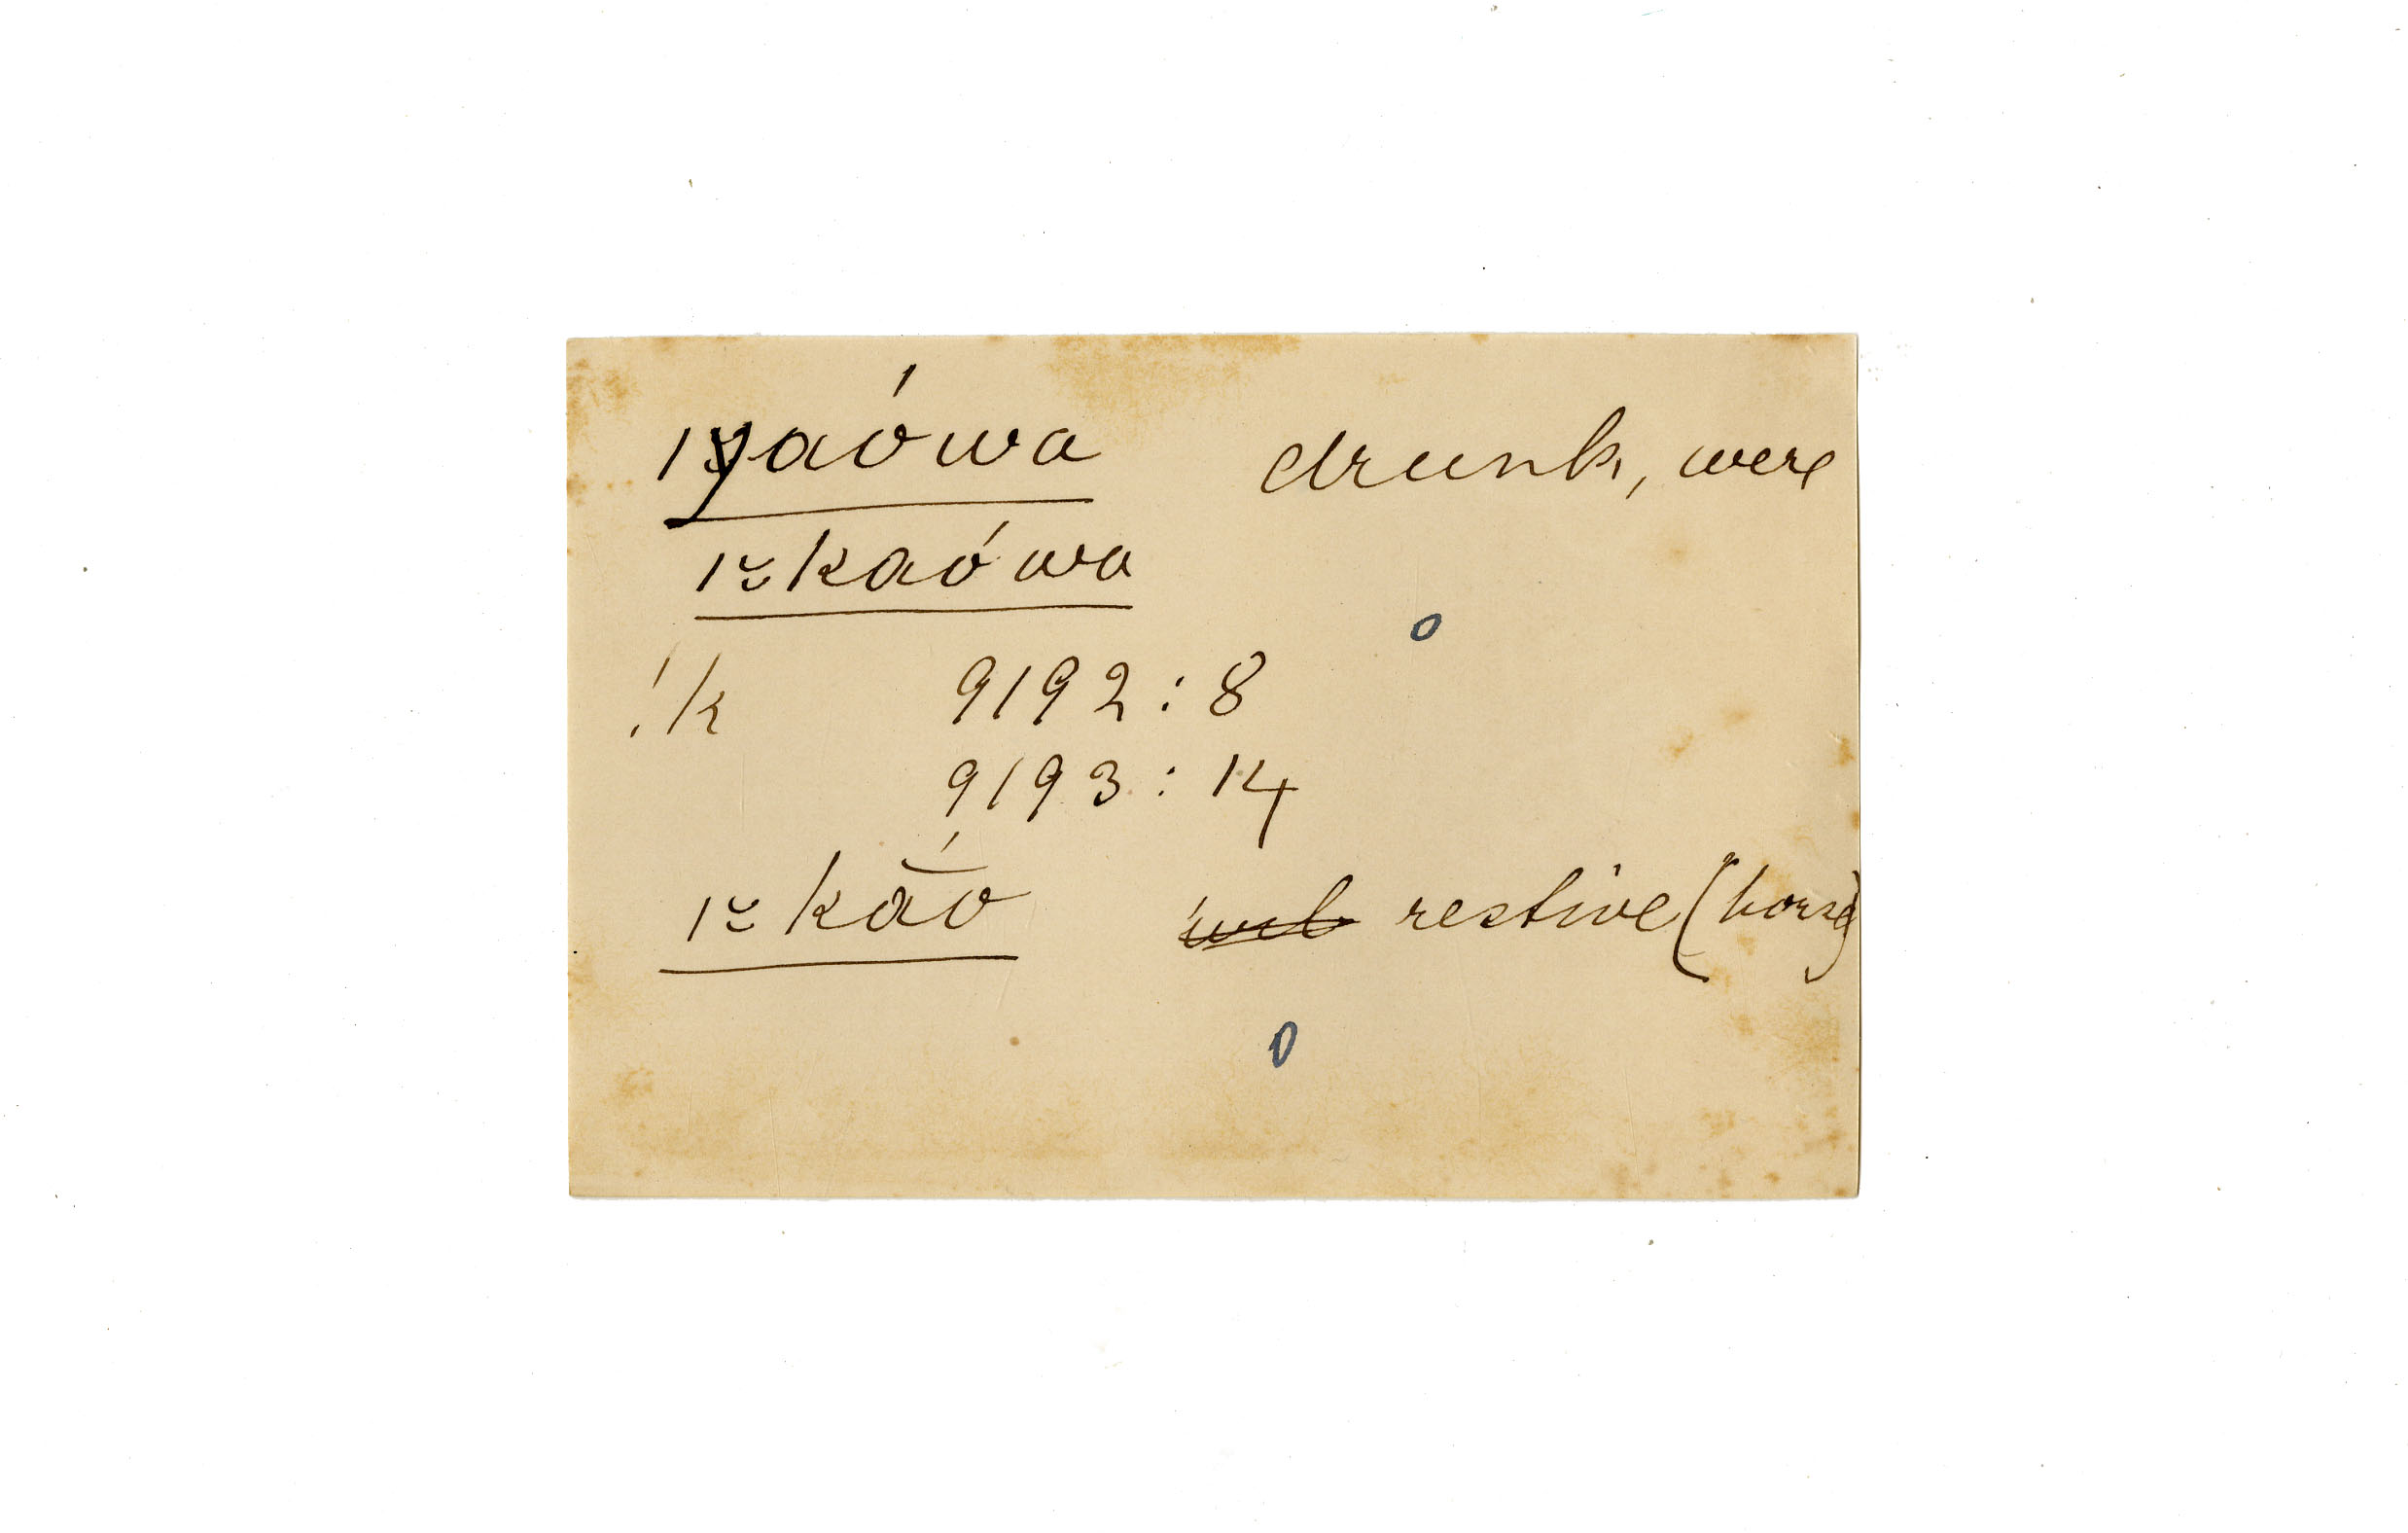 |yaówa drunk, were
|≍kaówa
o
!k 9192 : 8
9193 : 14
|≍kā́o restive (horse)
0